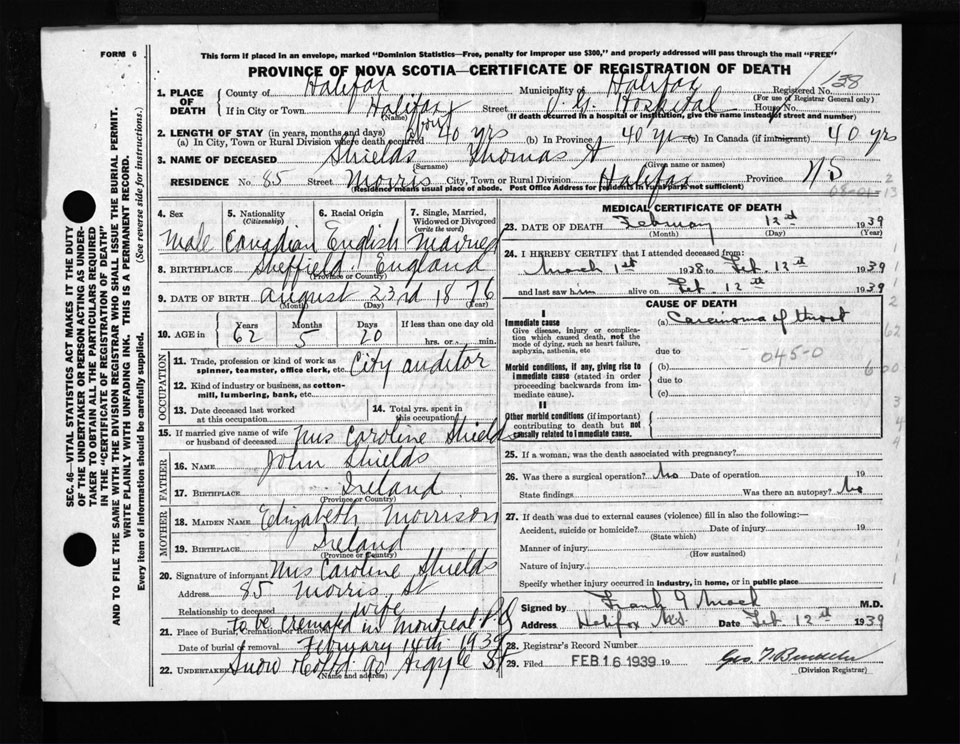 FORM 6
This form if placed in an envelope, marked "Dominion Statistics—Free, penalty for improper use $300," and properly addressed will pass through the mail "FREE"
PROVINCE OF NOVA SCOTIA—CERTIFICATE OF REGISTRATION OF DEATH
138
1. PLACE OF DEATH
County of Halifax Municipality of Halifax Registered No.
(For use of Registrar General only)
If in City or Town Halifax Street V. G. Hospital House No.
(Name) (If death occurred in a hospital or institution, give the name instead of street and number)
2. LENGTH OF STAY (in years, months and days)
(a) In City, Town or Rural Division where death occurred 40 yrs (b) In Province 40 yrs (c) In Canada (if immigrant) 40 yrs
3. NAME OF DECEASED Shields Thomas A
(Surname) (Given name or names)
RESIDENCE No. 85 Street Morris City, Town or Rural Division Halifax Province NS
(Residence means usual place of abode. Post Office Address for residents in rural parts not sufficient)
4. Sex 5. Nationality (Citizenship) 6. Racial Origin 7. Single, Married, Widowed or Divorced (write the word)
Male Canadian English Married
8. BIRTHPLACE Sheffield, England
(Province or Country)
9. DATE OF BIRTH August 23rd 1876
(Month) (Day) (Year)
10. AGE in Years Months Days If less than one day old
62 5 20 hrs. or min.
OCCUPATION
11. Trade, profession or kind of work as spinner, teamster, office clerk, etc. City auditor
12. Kind of industry or business, as cotton-mill, lumbering, bank, etc.
13. Date deceased last worked at this occupation
14. Total yrs. spent in this occupation
15. If married give name of wife or husband of deceased Mrs Caroline Shields
FATHER
16. NAME John Shields
17. BIRTHPLACE Ireland
(Province or Country)
MOTHER
18. MAIDEN NAME Elizabeth Morrison
19. BIRTHPLACE Ireland
(Province or Country)
20. Signature of informant Mrs Caroline Shields
Address 85 Morris St
Relationship to deceased wife
21. Place of Burial, Cremation or Removal to be cremated in Montreal P.Q
Date of burial or removal February 14th 1939
22. UNDERTAKER Snow & Co Ltd 90 Argyle St
(Name and address)
MEDICAL CERTIFICATE OF DEATH
23. DATE OF DEATH February 12th 1939
(Month) (Day) (Year)
24. I HEREBY CERTIFY that I attended deceased from:
March 1st 1938 to Feb. 12th 1939
and last saw him alive on Feb. 12th 1939
CAUSE OF DEATH
I
Immediate cause (a) Carcinoma of throat
Give disease, injury or complication which caused death, not the mode of dying, such as heart failure, asphyxia, asthenia, etc
due to
045-0
Morbid conditions, if any, giving rise to immediate cause (stated in order proceeding backwards from immediate cause).
(b)
due to
(c)
II
Other morbid conditions (if important) contributing to death but not causally related to immediate cause.
25. If a woman, was the death associated with pregnancy?
26. Was there a surgical operation? No Date of operation 19
State findings Was there an autopsy? No
27. If death was due to external causes (violence) fill in also the following:—
Accident, suicide or homicide? Date of injury 19
(State which)
Manner of injury
(How sustained)
Nature of injury
Specify whether injury occurred in industry, in home, or in public place
Signed by Frank G Mack M.D.
Address Halifax N.S. Date Feb. 12th 1939
28. Registrar's Record Number
29. Filed FEB 16 1939 19
(Division Registrar)
SEC. 46—VITAL STATISTICS ACT MAKES IT THE DUTY OF THE UNDERTAKER OR PERSON ACTING AS UNDERTAKER TO OBTAIN ALL THE PARTICULARS REQUIRED IN THE "CERTIFICATE OF REGISTRATION OF DEATH"
AND TO FILE THE SAME WITH THE DIVISION REGISTRAR WHO SHALL ISSUE THE BURIAL PERMIT.
WRITE PLAINLY WITH UNFADING INK. THIS IS A PERMANENT RECORD.
Every item of information should be carefully supplied. (See reverse side for instructions.)